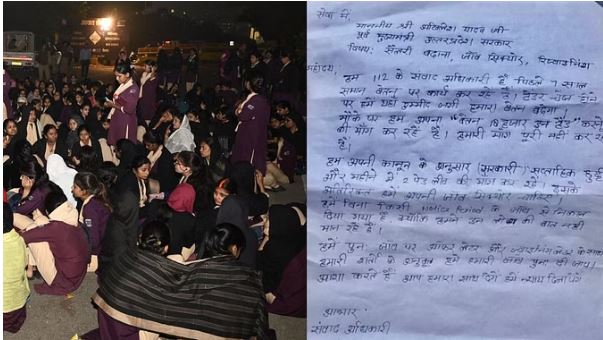 सेवा में,
माननीय श्री अखिलेश यादव जी
पूर्व मुख्यमंत्री उत्तरप्रदेश सरकार
विषय: सैलरी बढ़ाना, जॉब
महोदय,
हम 112 के संवाद अधिकारी हैं पिछले 7 साल
समान वेतन पर कार्य कर रहे हैं।
पर हमें यही उम्मीद जगी हमारा वेतन बढ़ेगा
मौके पर हम अपना वेतन 18 हजार करने
की माँग कर रहे हैं। हमारी माँग पूरी नहीं कर रहे
हैं।
हम अपनी कानून के अनुसार (सरकारी) साप्ताहिक छुट्टी
और महीने में 2 पेड लीव की माँग कर रहे। इसके
अतिरिक्त हमें अपनी जॉब चाहिए।
हमें बिना किसी के जॉब से निकाल
दिया गया है क्योंकि हमने उन लोगों की बात नहीं
मान रहे हैं।
हमें पुनः जॉब पर ऑफर लेटर और के साथ
हमारी शर्तों के अनुकूल हमें हमारी जॉब पुनः दी जाए।
आशा करते हैं आप हमारा साथ देंगे हमें न्याय दिलाएंगे
आभार
संवाद अधिकारी